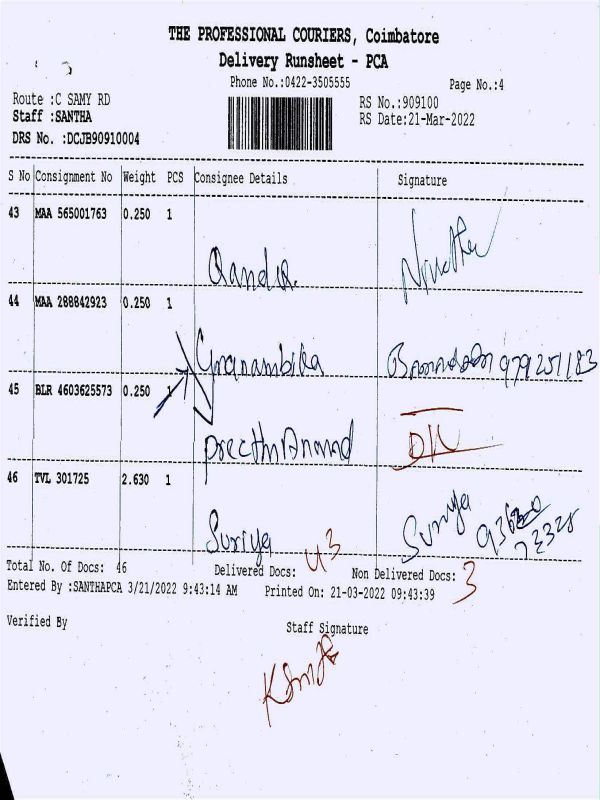 THE PROFESSIONAL COURIERS, Coimbatore
Delivery Runsheet - PCA
Phone No.:0422-3505555 Page No.:4
Route :C SAMY RD RS No.:909100
Staff :SANTHA RS Date:21-Mar-2022
DRS No. :DCJB90910004
S No Consignment No Weight PCS Consignee Details Signature
43 MAA 565001763 0.250 1
44 MAA 288842923 0.250 1
Gnanambika 979251183
45 BLR 4603625573 0.250 1
Preethi Anand
46 TVL 301725 2.630 1
Suriya Suriya
Total No. Of Docs: 46 Delivered Docs: 43 Non Delivered Docs: 3
Entered By :SANTHAPCA 3/21/2022 9:43:14 AM Printed On: 21-03-2022 09:43:39
Verified By Staff Signature